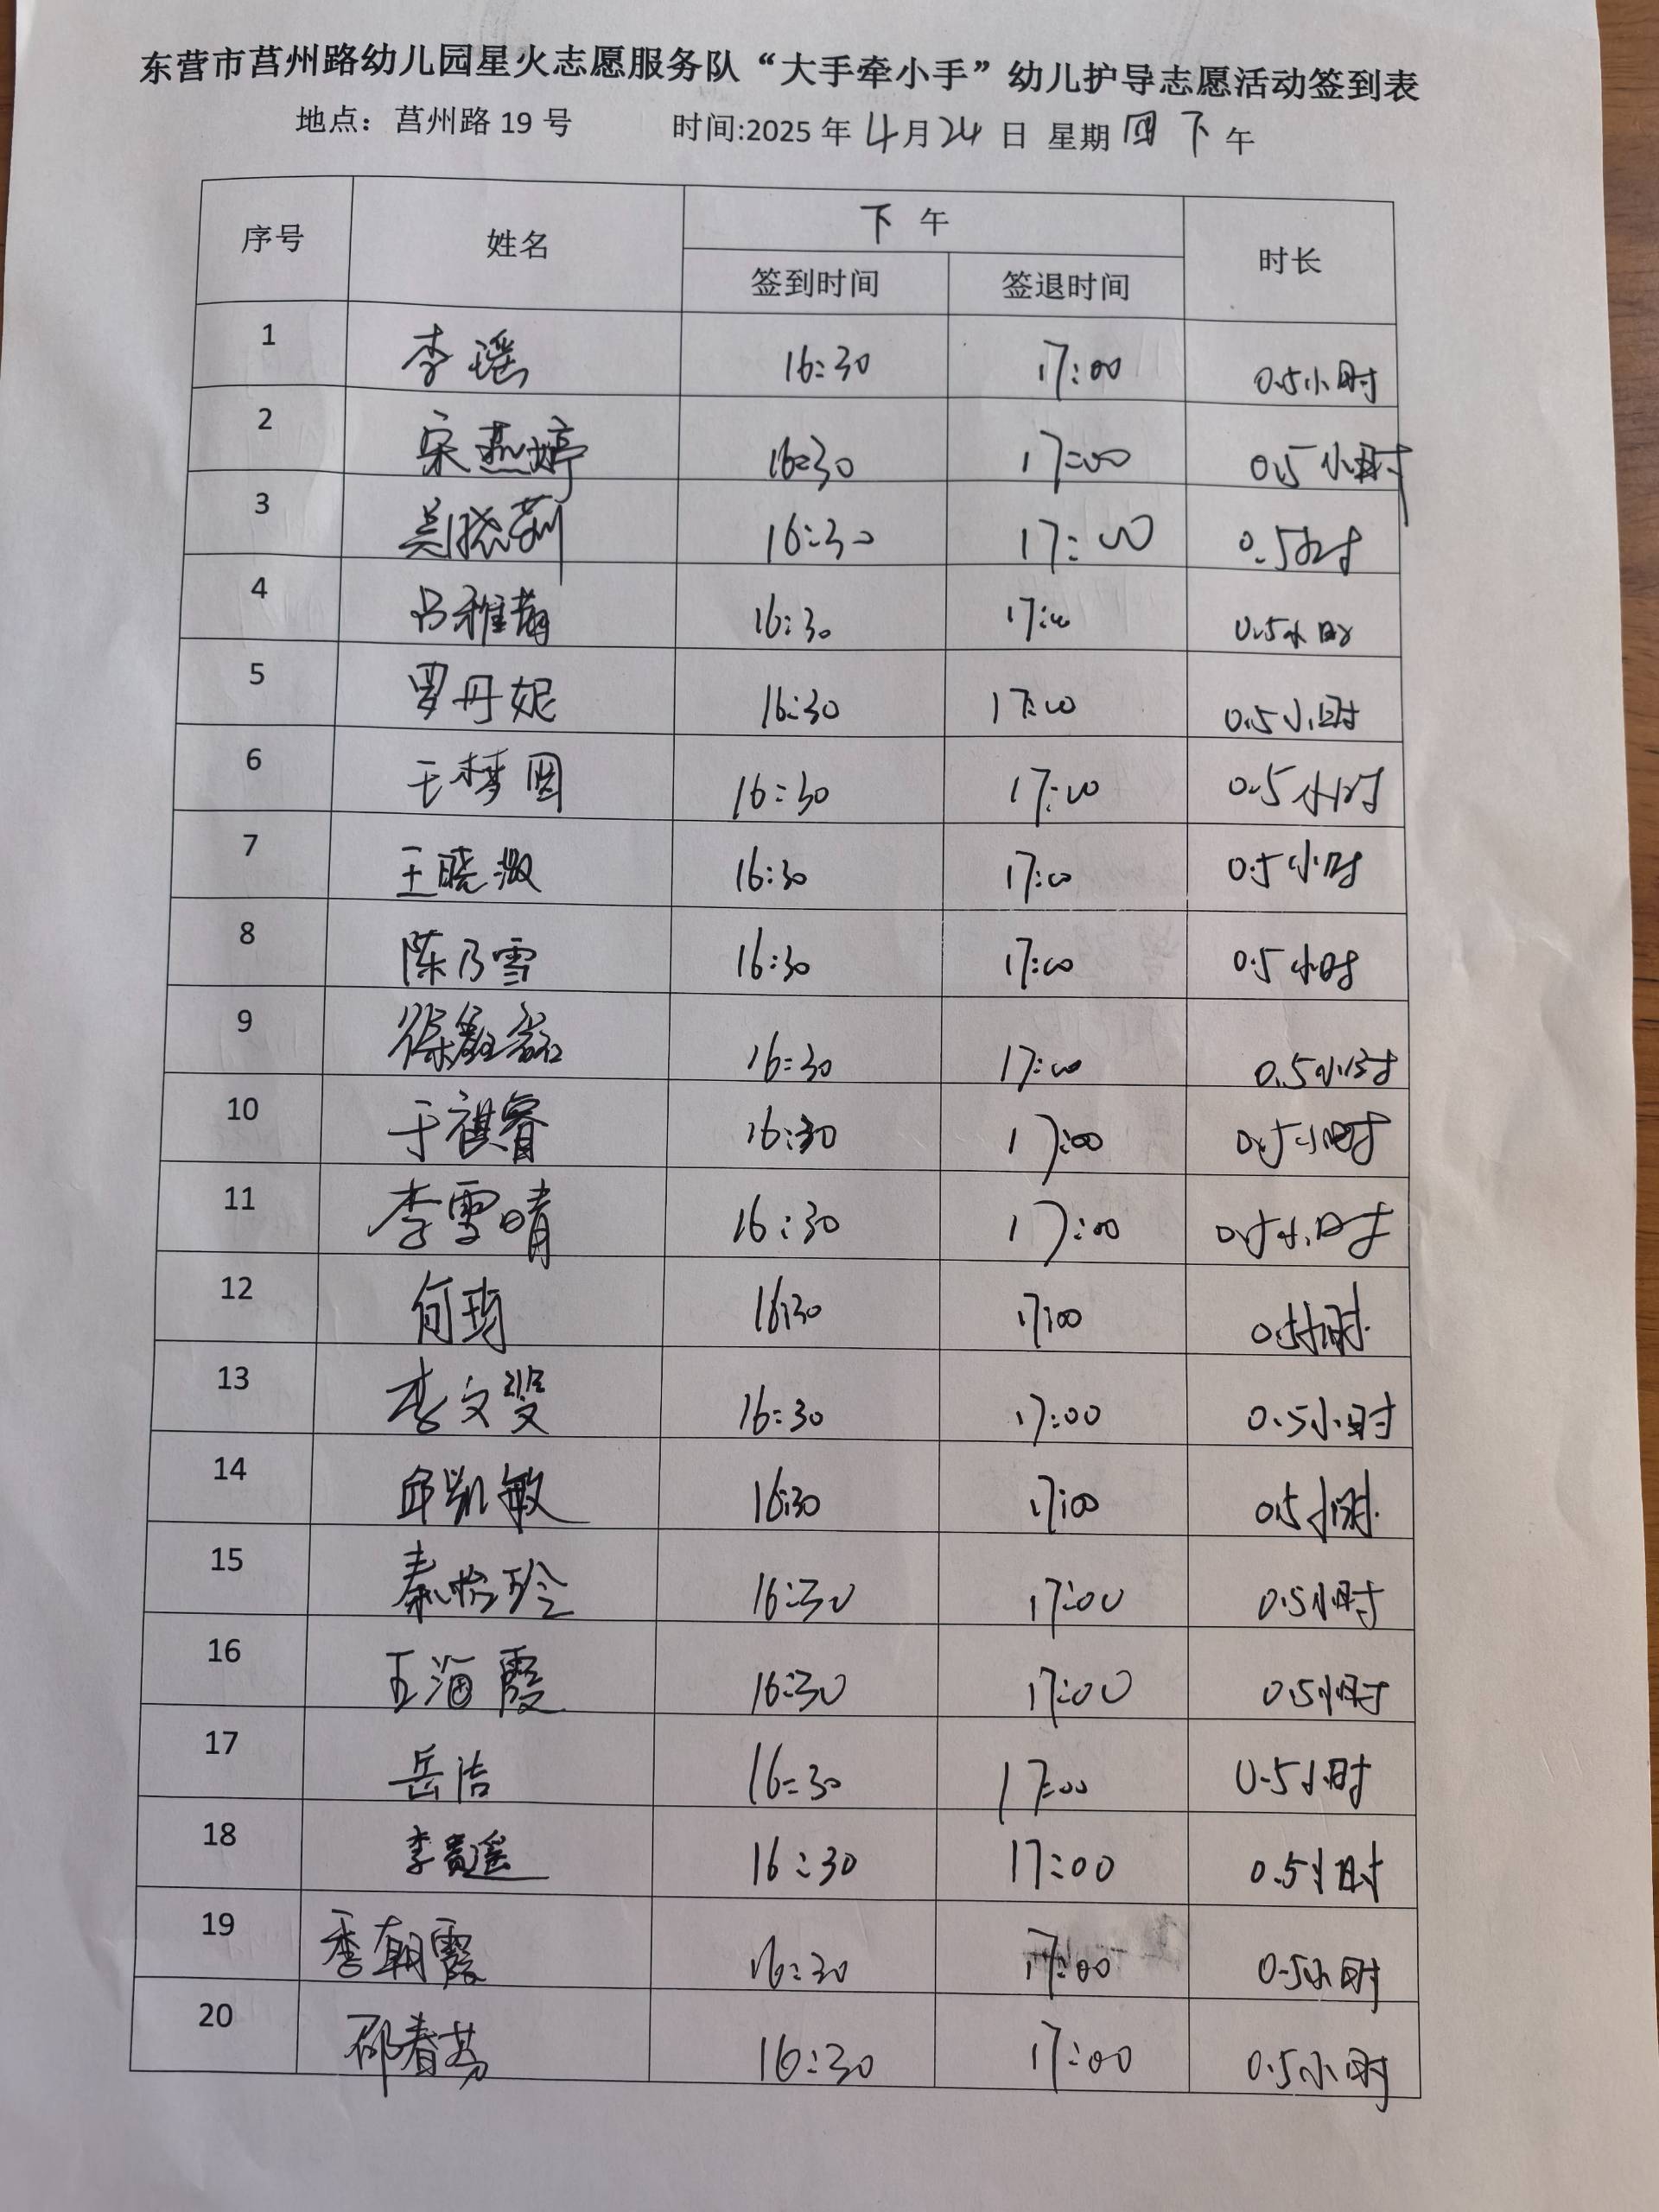 东营市莒州路幼儿园星火志愿服务队“大手牵小手”幼儿护导志愿活动签到表
地点：莒州路 19 号 时间:2025 年 4 月 24 日 星期 四 下 午
序号 姓名 下 午 时长
签到时间 签退时间
1 李瑶 16:30 17:00 0.5小时
2 宋燕婷 16:30 17:00 0.5小时
3 吴晓莉 16:30 17:00 0.5小时
4 吕雅楠 16:30 17:00 0.5小时
5 罗丹妮 16:30 17:00 0.5小时
6 王梦圆 16:30 17:00 0.5小时
7 王晓溦 16:30 17:00 0.5小时
8 陈乃雪 16:30 17:00 0.5小时
9 徐 16:30 17:00 0.5小时
10 于祺睿 16:30 17:00 0.5小时
11 李雪晴 16:30 17:00 0.5小时
12 何琦 16:30 17:00 0.5小时
13 李文 16:30 17:00 0.5小时
14 邱凯敏 16:30 17:00 0.5小时
15 秦怡玲 16:30 17:00 0.5小时
16 王海霞 16:30 17:00 0.5小时
17 岳洁 16:30 17:00 0.5小时
18 李贵遥 16:30 17:00 0.5小时
19 季朝霞 16:30 17:00 0.5小时
20 邵春荔 16:30 17:00 0.5小时